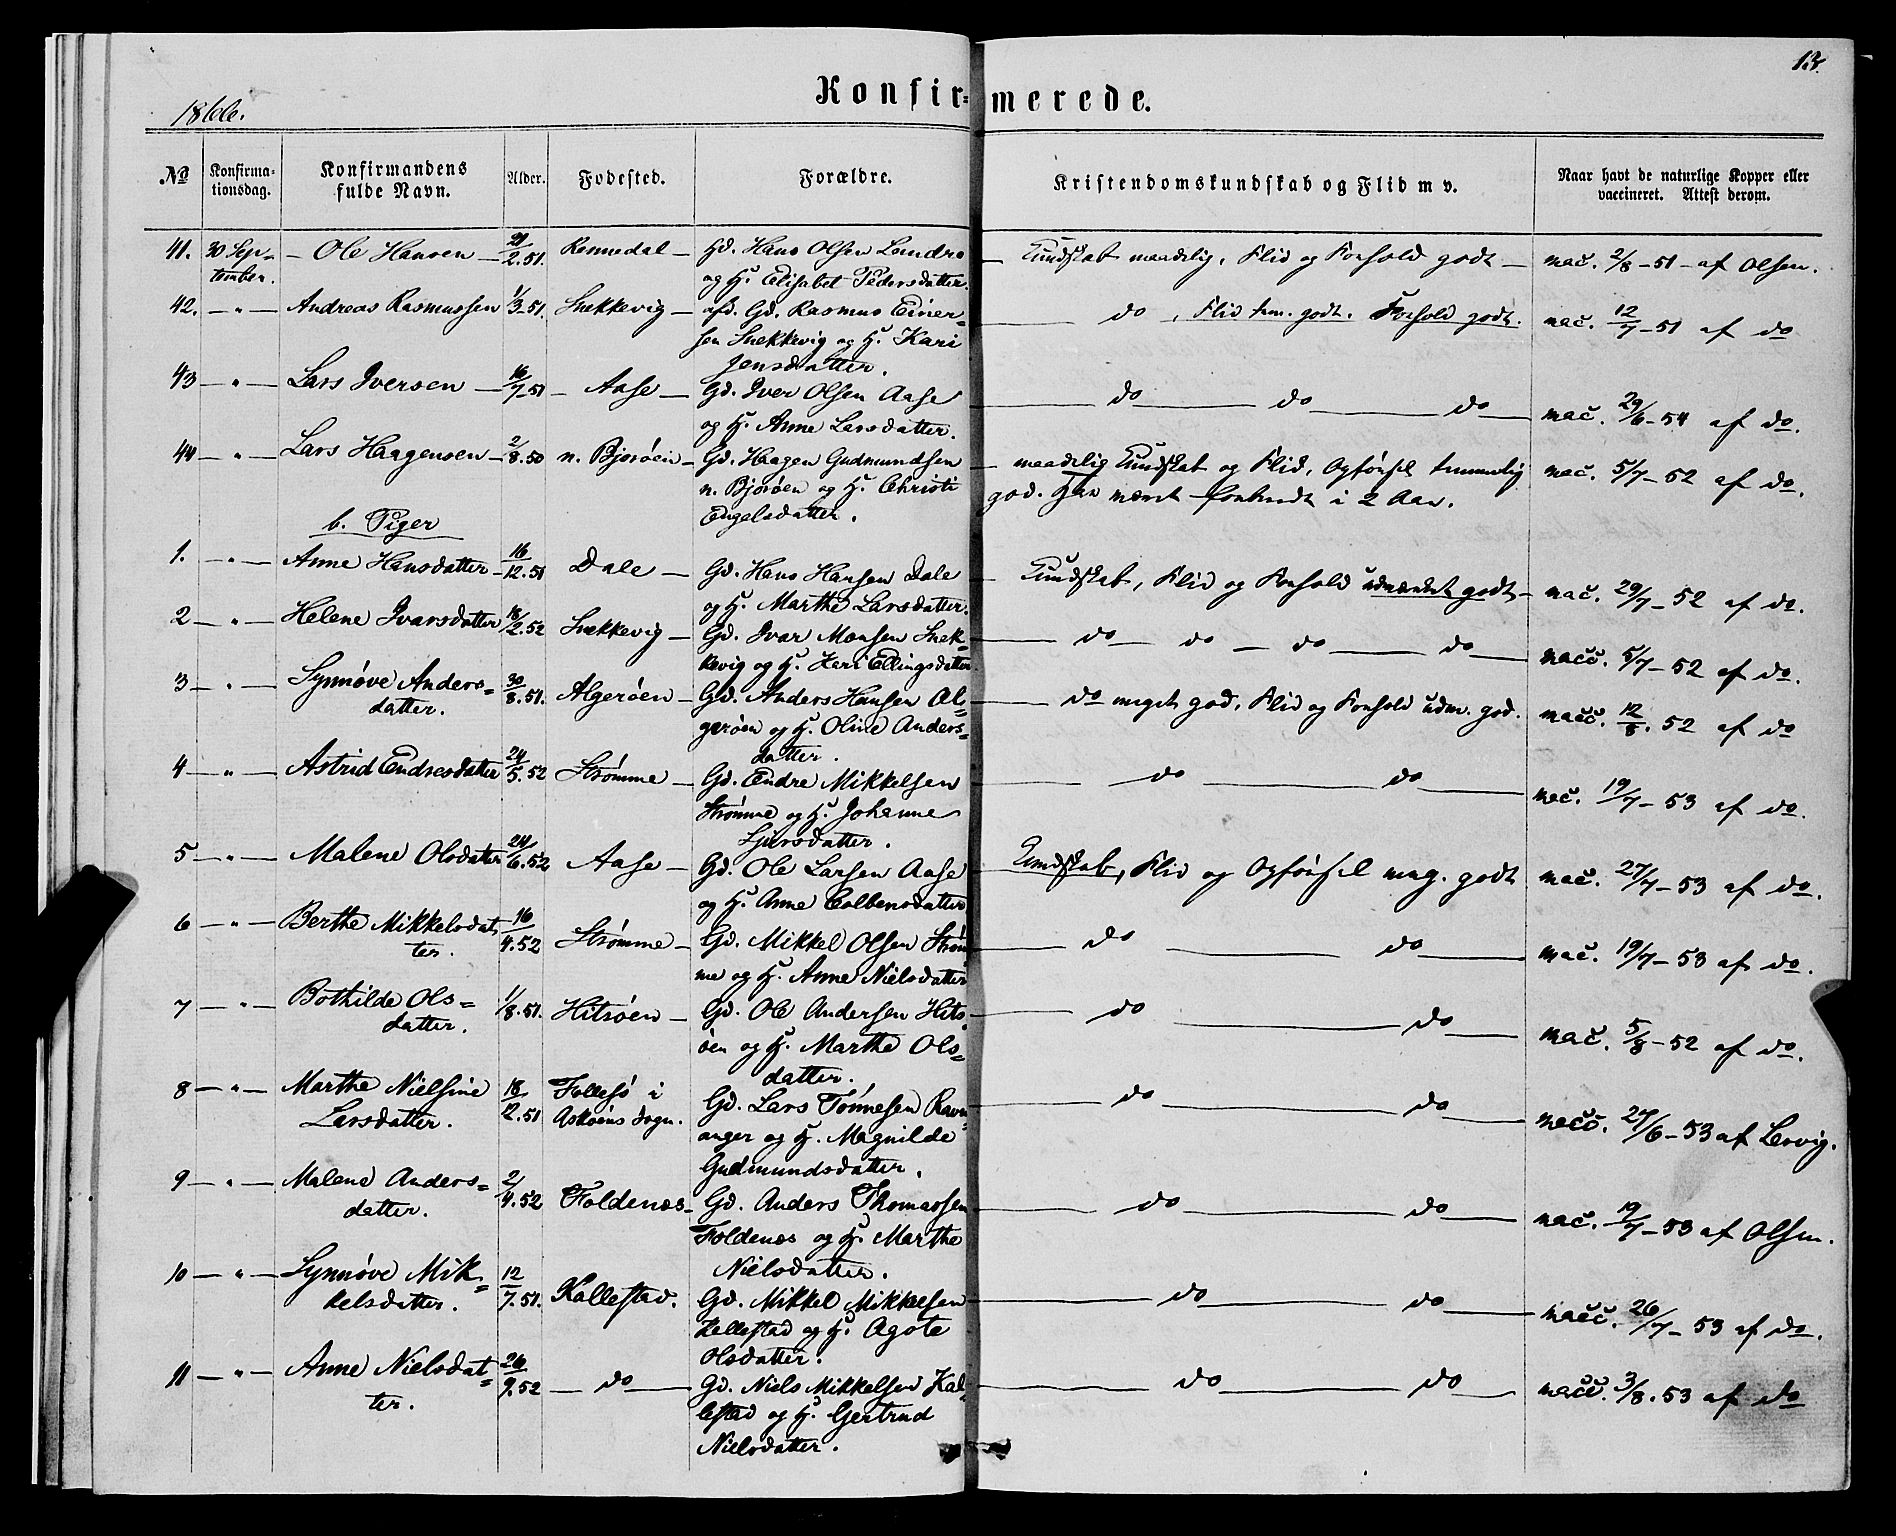 13.
1866.
Konfir=merede.
No
Konfirma-
tionsdag.
Konfirmandens
fulde Navn.
Alder.
Fødested.
Forældre.
Kristendomskundskab og Flid m v.
Naar havt de naturlige Kopper eller
vaccineret. Attest derom.
41. 30 Sep- – Ole Hansen – 21/2.51. Rennedal – Gd. Hans Olsen – Kundskab maadelig, Flid og Forhold godt – vac. 2/8-51- af Olsen.
tember. og H. Elisabet Pedersdatter.
42. – " – Andreas Rasmussen 1/3.51. Snekkevig – afd. Gd. Rasmus Einer= – do, Flid tem. godt. Forhold godt. vac. 12/7-51 af do
sen Snekkevig og H. Kari
Jensdatter.
43 – " – Lars Iversen – 16/7.51 – Aase – Gd. Iver Olsen Aase – do – do – do – vac. 29/6-54 af do.
og H. Anne Larsdatter.
44 – " – Lars Haagensen – 2/8.50 n. Bjorøen – Gd. Haagen Gudmundsen – maadelig Kundskab og Flid, Opførsel temmelig vac. 5/7-52 af do.
n. Bjorøen og H. Christi god. Har været forberedt i 2 Aar.
Engelsdatter.
b. Piger
1. – " – Anne Hansdatter – 16/12.51 Dale – Gd. Hans Hansen Dale – Kundskab, Flid og Forhold udmærket godt – vac. 29/7-52 af do.
og H. Marthe Larsdatter.
2 – " – Helene Ivarsdatter 18/2.52 Snekkevig – Gd. Ivar Monsen Snek= – do – do – do – do – vacc. 5/7-52 af do.
kevig og H. Kari Ellingsdatter
3 – " – Synnøve Anders= 30/8.51. Algerøen – Gd. Anders Hansen Al= – do meget god, Flid og Forhold udm. god. vacc. 12/8.52 af do
datter. gerøen og H. Oline Anders=
datter.
4 – " – Astrid Endresdatter 24/5.52 Strømme – Gd. Endre Mikkelsen – do – do – vac. 19/7-53 af do.
Strømme og H. Johanne
Sjursdatter.
5 – " – Malene Olsdatter 24/6.52 Aase – Gd. Ole Larsen Aase Kundskab, Flid og Opførsel meg. godt vac. 27/7-53 af do.
og H. Anne Colbensdatter
6 – " – Berthe Mikkelsdat 16/4.52 Strømme – Gd. Mikkel Olsen Strøm – do – do – vac. 19/7-53 af do.
ter. me og H. Anne Nielsdatter
7 – " – Bothilde Ols= 1/8.51. Hitsøen – Gd. Ole Andersen Hits – do – do – vac. 5/8-52 af do.
datter. øen og H. Marthe Ols=
datter.
8 – " – Marthe Nielsine 18/12.51 Follesø i Gd. Lars Tønnesen Ravn – do – do – vacc. 27/6-53 af Lervig.
Larsdatter. Askøens Sogn. anger og H. Magnilde
Gudmundsdatter.
9 – " – Malene Anders= 2/4.52 Foldenæs – Gd. Anders Thomassen – do – do – vac. 19/7-53 af Olsen.
datter. Foldenæs og H. Marthe
Nielsdatter.
10 – " – Synnøve Mik= 12/7.51. Kallestad. Gd. Mikkel Mikkelsen – do – do – vacc. 26/7-53 af do.
kelsdatter. Kallestad og H. Agote
Olsdatter.
11 – " – Anne Nielsdat= 26/9.52 – do – Gd. Niels Mikkelsen Kal= – do – do – vacc. 3/8.53 af do
ter. lestad og H. Gertrud
Nielsdatter.